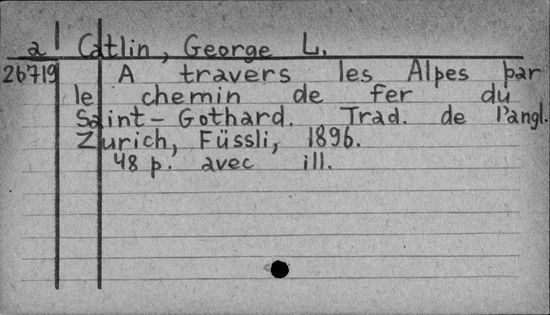 a Catlin, George L.
26719 A travers les Alpes par
le chemin de fer du
Saint-Gothard. Trad. de l'angl.
Zurich, Füssli, 1896.
48 p. avec ill.